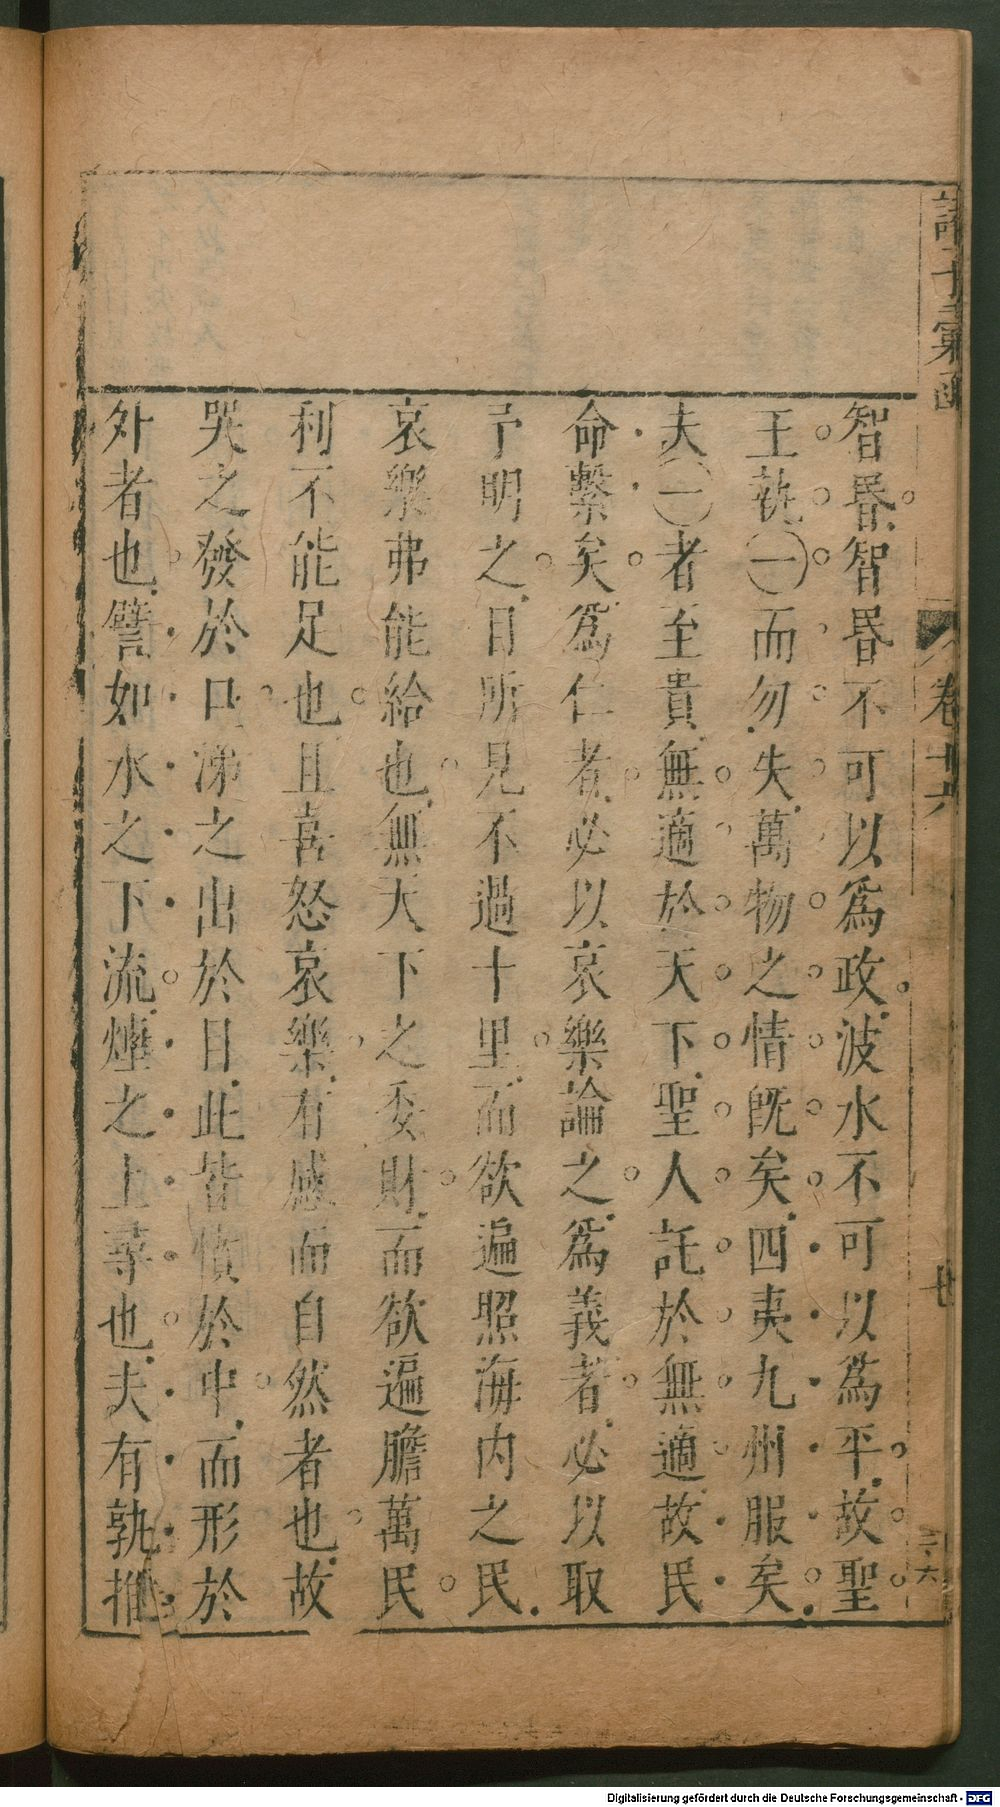 諸子彙函
卷十六
廿
智昬智昬不可以爲政波水不可以爲平故聖
王執一而勿失萬物之情旣矣四夷九州服矣
夫一者至貴無適於天下聖人託於無適故民
命繫矣爲仁者必以哀樂論之爲義者必以取
予明之目所見不過十里而欲遍照海内之民
哀樂弗能給也無天下之委財而欲遍贍萬民
利不能足也且喜怒哀樂有感而自然者也故
哭之發於口涕之出於目此皆憤於中而形於
外者也譬如水之下流煙之上尋也夫有孰推
Digitalisierung gefördert durch die Deutsche Forschungsgemeinschaft - DFG